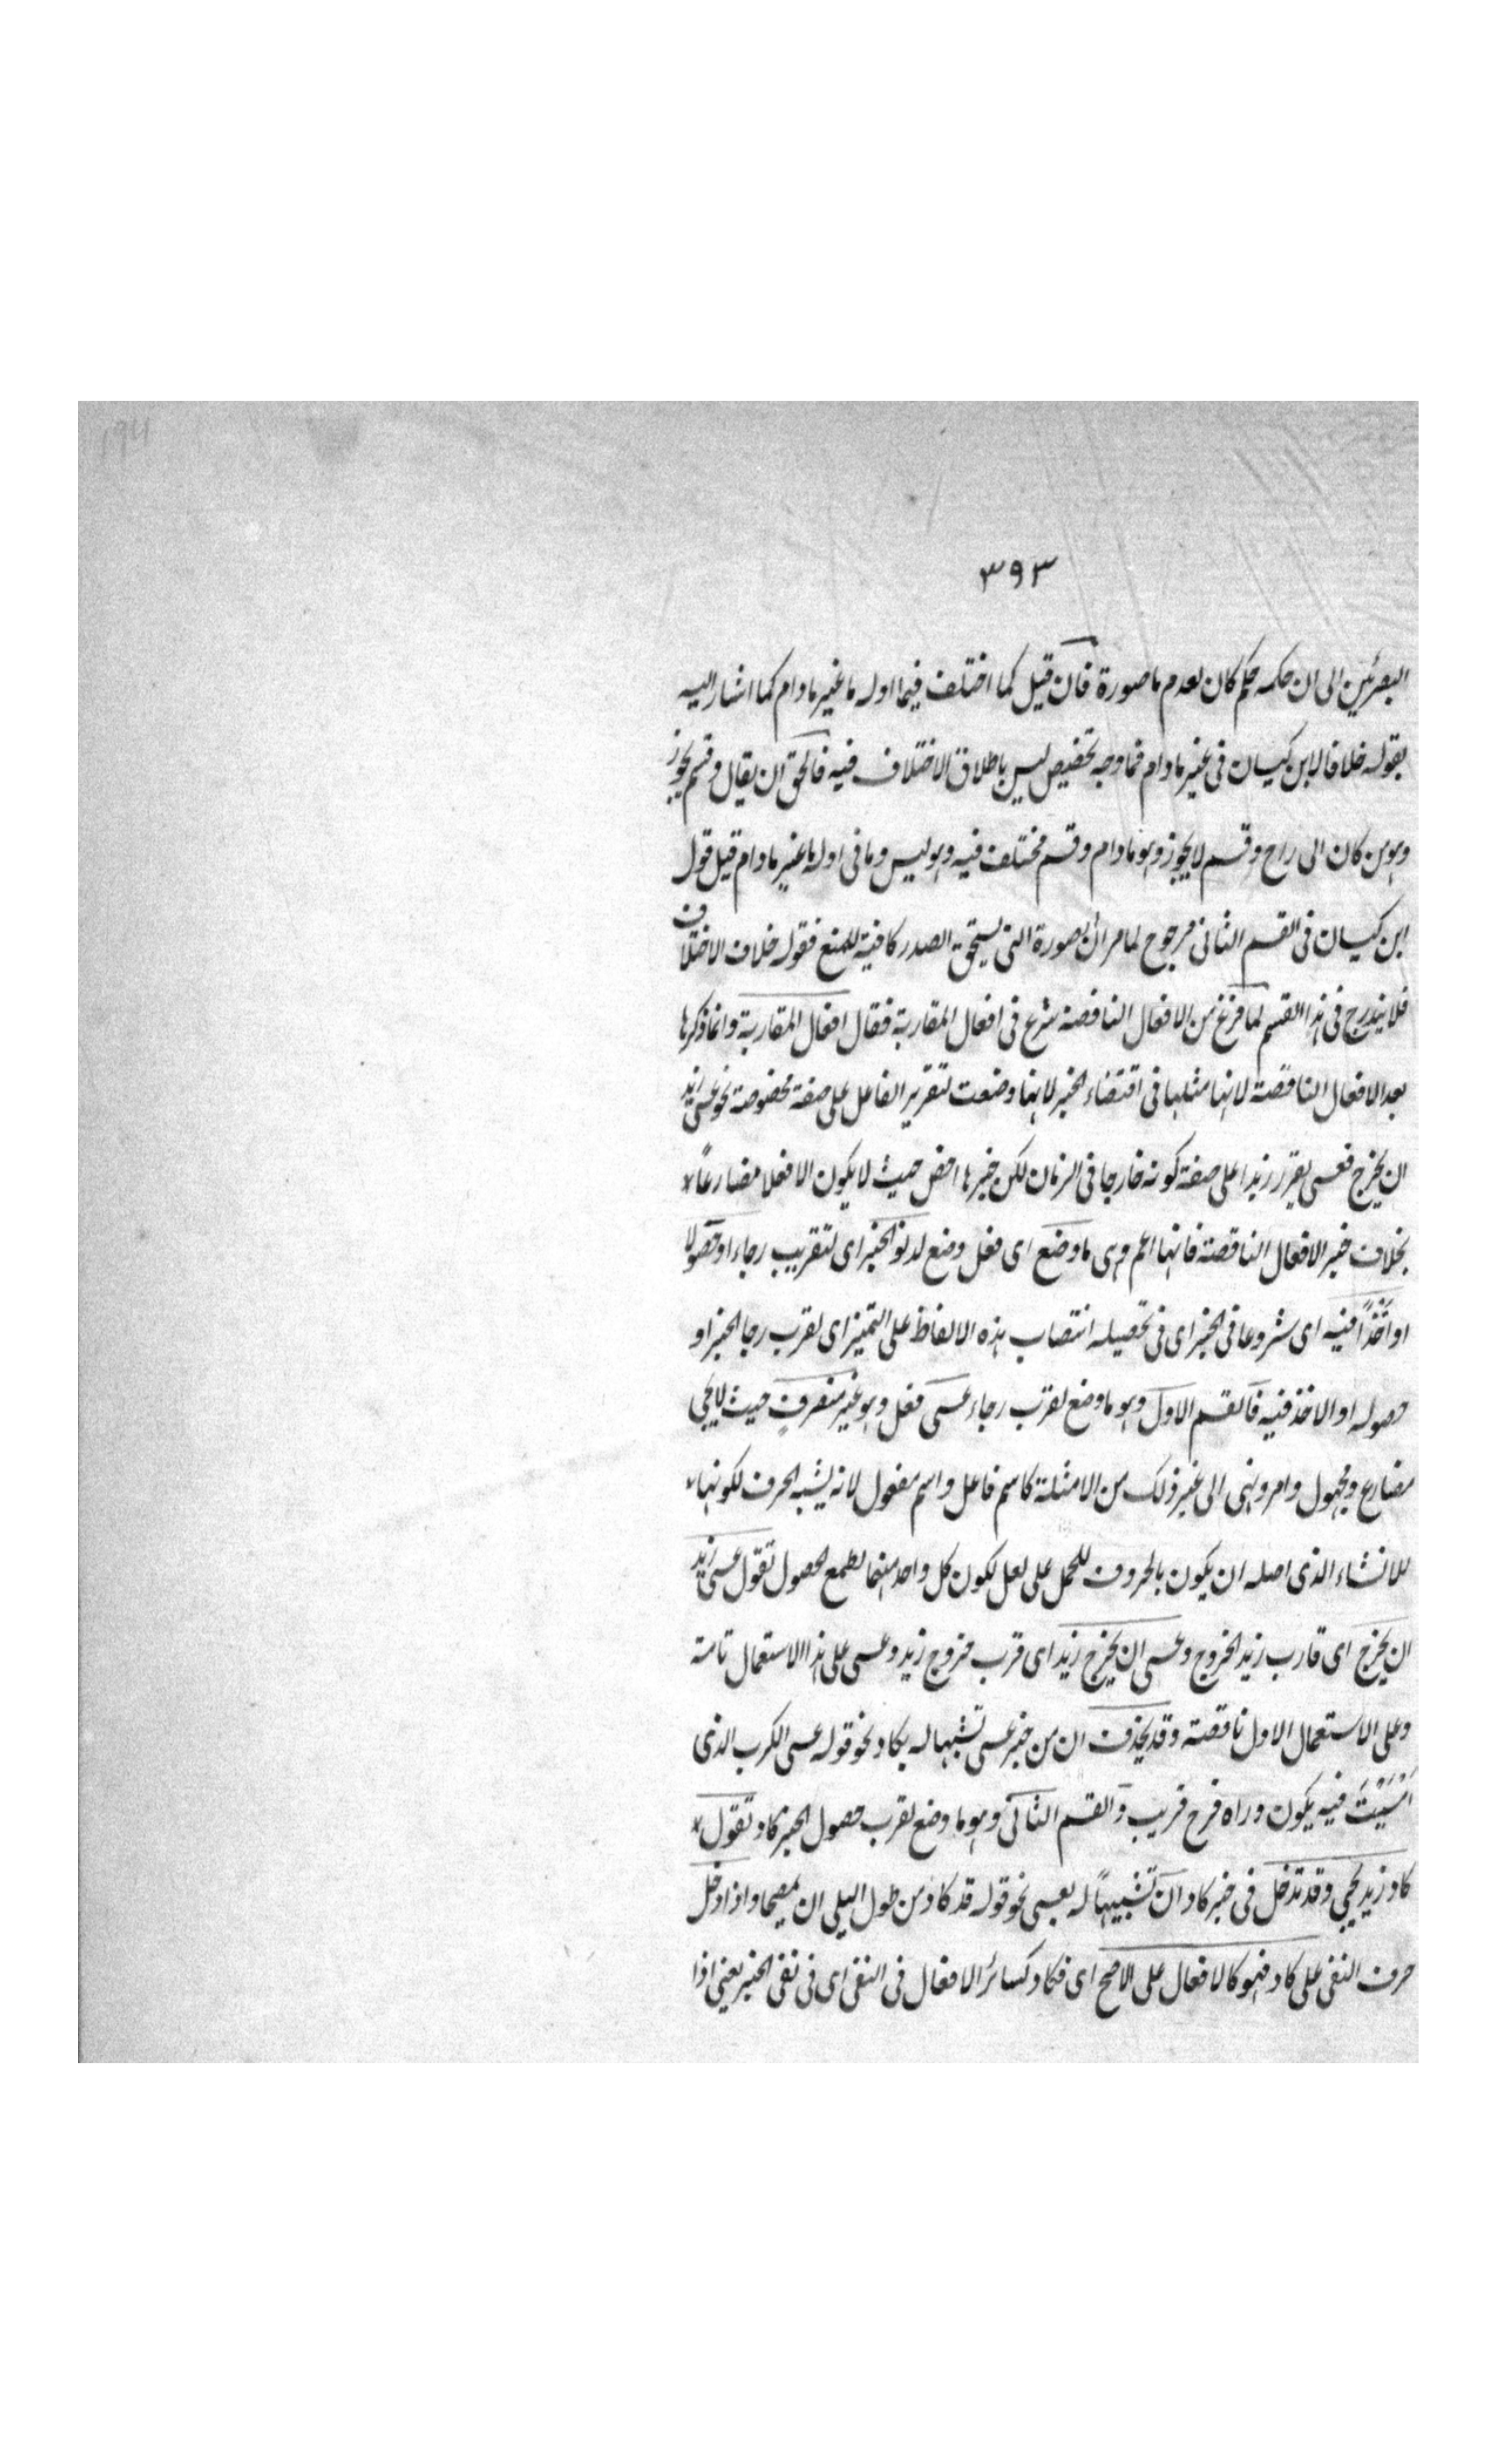 ٣٩٣
البصرئين الى ان حكمه حكم كان لعدم ما صورة فان قيل كما اختلف فيما اوله ما غير مادام كما اشار اليه
بقوله خلافا لابن كيسان فى غير مادام فما وجه تخصيص ليس باطلاق الاختلاف فيه فالحق ان يقال وقسم يجوز
وهو من كان الى راح وقسم لا يجوز وهو مادام وقسم مختلف فيه وهو ليس وما فى اوله ما غير مادام قيل قول
ابن كيسان فى القسم الثانى مرجوح لما مر ان الصورة التى يستحق الصدر كافية للمنع فقوله خلاف لا اختلاف
فلا يندرج فى هذا القسم لما فرغ من الافعال الناقصة شرع فى افعال المقاربة فقال افعال المقاربة وانما ذكرها
بعد الافعال الناقصة لانها مثلها فى اقتضاء الخبر لانها وضعت لتقرير الفاعل على صفة مخصوصة نحو عسى زيد
ان يخرج فعسى يقرر زيدا على صفة كونه خارجا فى الزمان لكن خبرها اخص حيث لا يكون الا فعلا مضارعاً
بخلاف خبر الافعال الناقصة فانها اعم وهى ما وضع اى فعل وضع لدنو الخبر اى لتقريب رجاء او حصولا
او اَخْذًا فيه اى شروعا فى الخبر اى فى تحصيله انتصاب هذه الالفاظ على التميز اى لقرب رجا الخبر او
حصوله او الاخذ فيه فالقسم الاول وهو ما وضع لقرب رجاء عسى فعل وهو غير متصرف حيث لا يجى
مضارع ومجهول وامر ونهى الى غير ذلك من الامثلة كاسم فاعل واسم مفعول لانه يشبه الحرف لكونها
للانشاء الذى اصله ان يكون بالحروف للحمل على لعل لكون كل واحد منهما لطمع الحصول تقول عسى زيد
ان يخرج اى قارب زيد الخروج وعسى ان يخرج زيد اى قرب خروج زيد وعسى على هذا الاستعمال تامة
وعلى الاستعمال الاول ناقصة وقد يحذف ان من خبر عسى تشبها له بكاد نحو قوله عسى الكرب الذى
اَمْسَيْتَ فيه يكون وراه فرج قريب والقسم الثانى وهو ما وضع لقرب حصول الخبر كاد تقول
كاد زيد يجيى وقد تدخل فى خبر كاد ان تشبيهاً له بعسى نحو قوله قد كاد من طول البلى ان يمصحا واذا دخل
حرف النفى على كاد فهو كالافعال على الاصح اى فكاد كسائر الافعال فى النفى اى فى نفى الخبر يعنى اذا